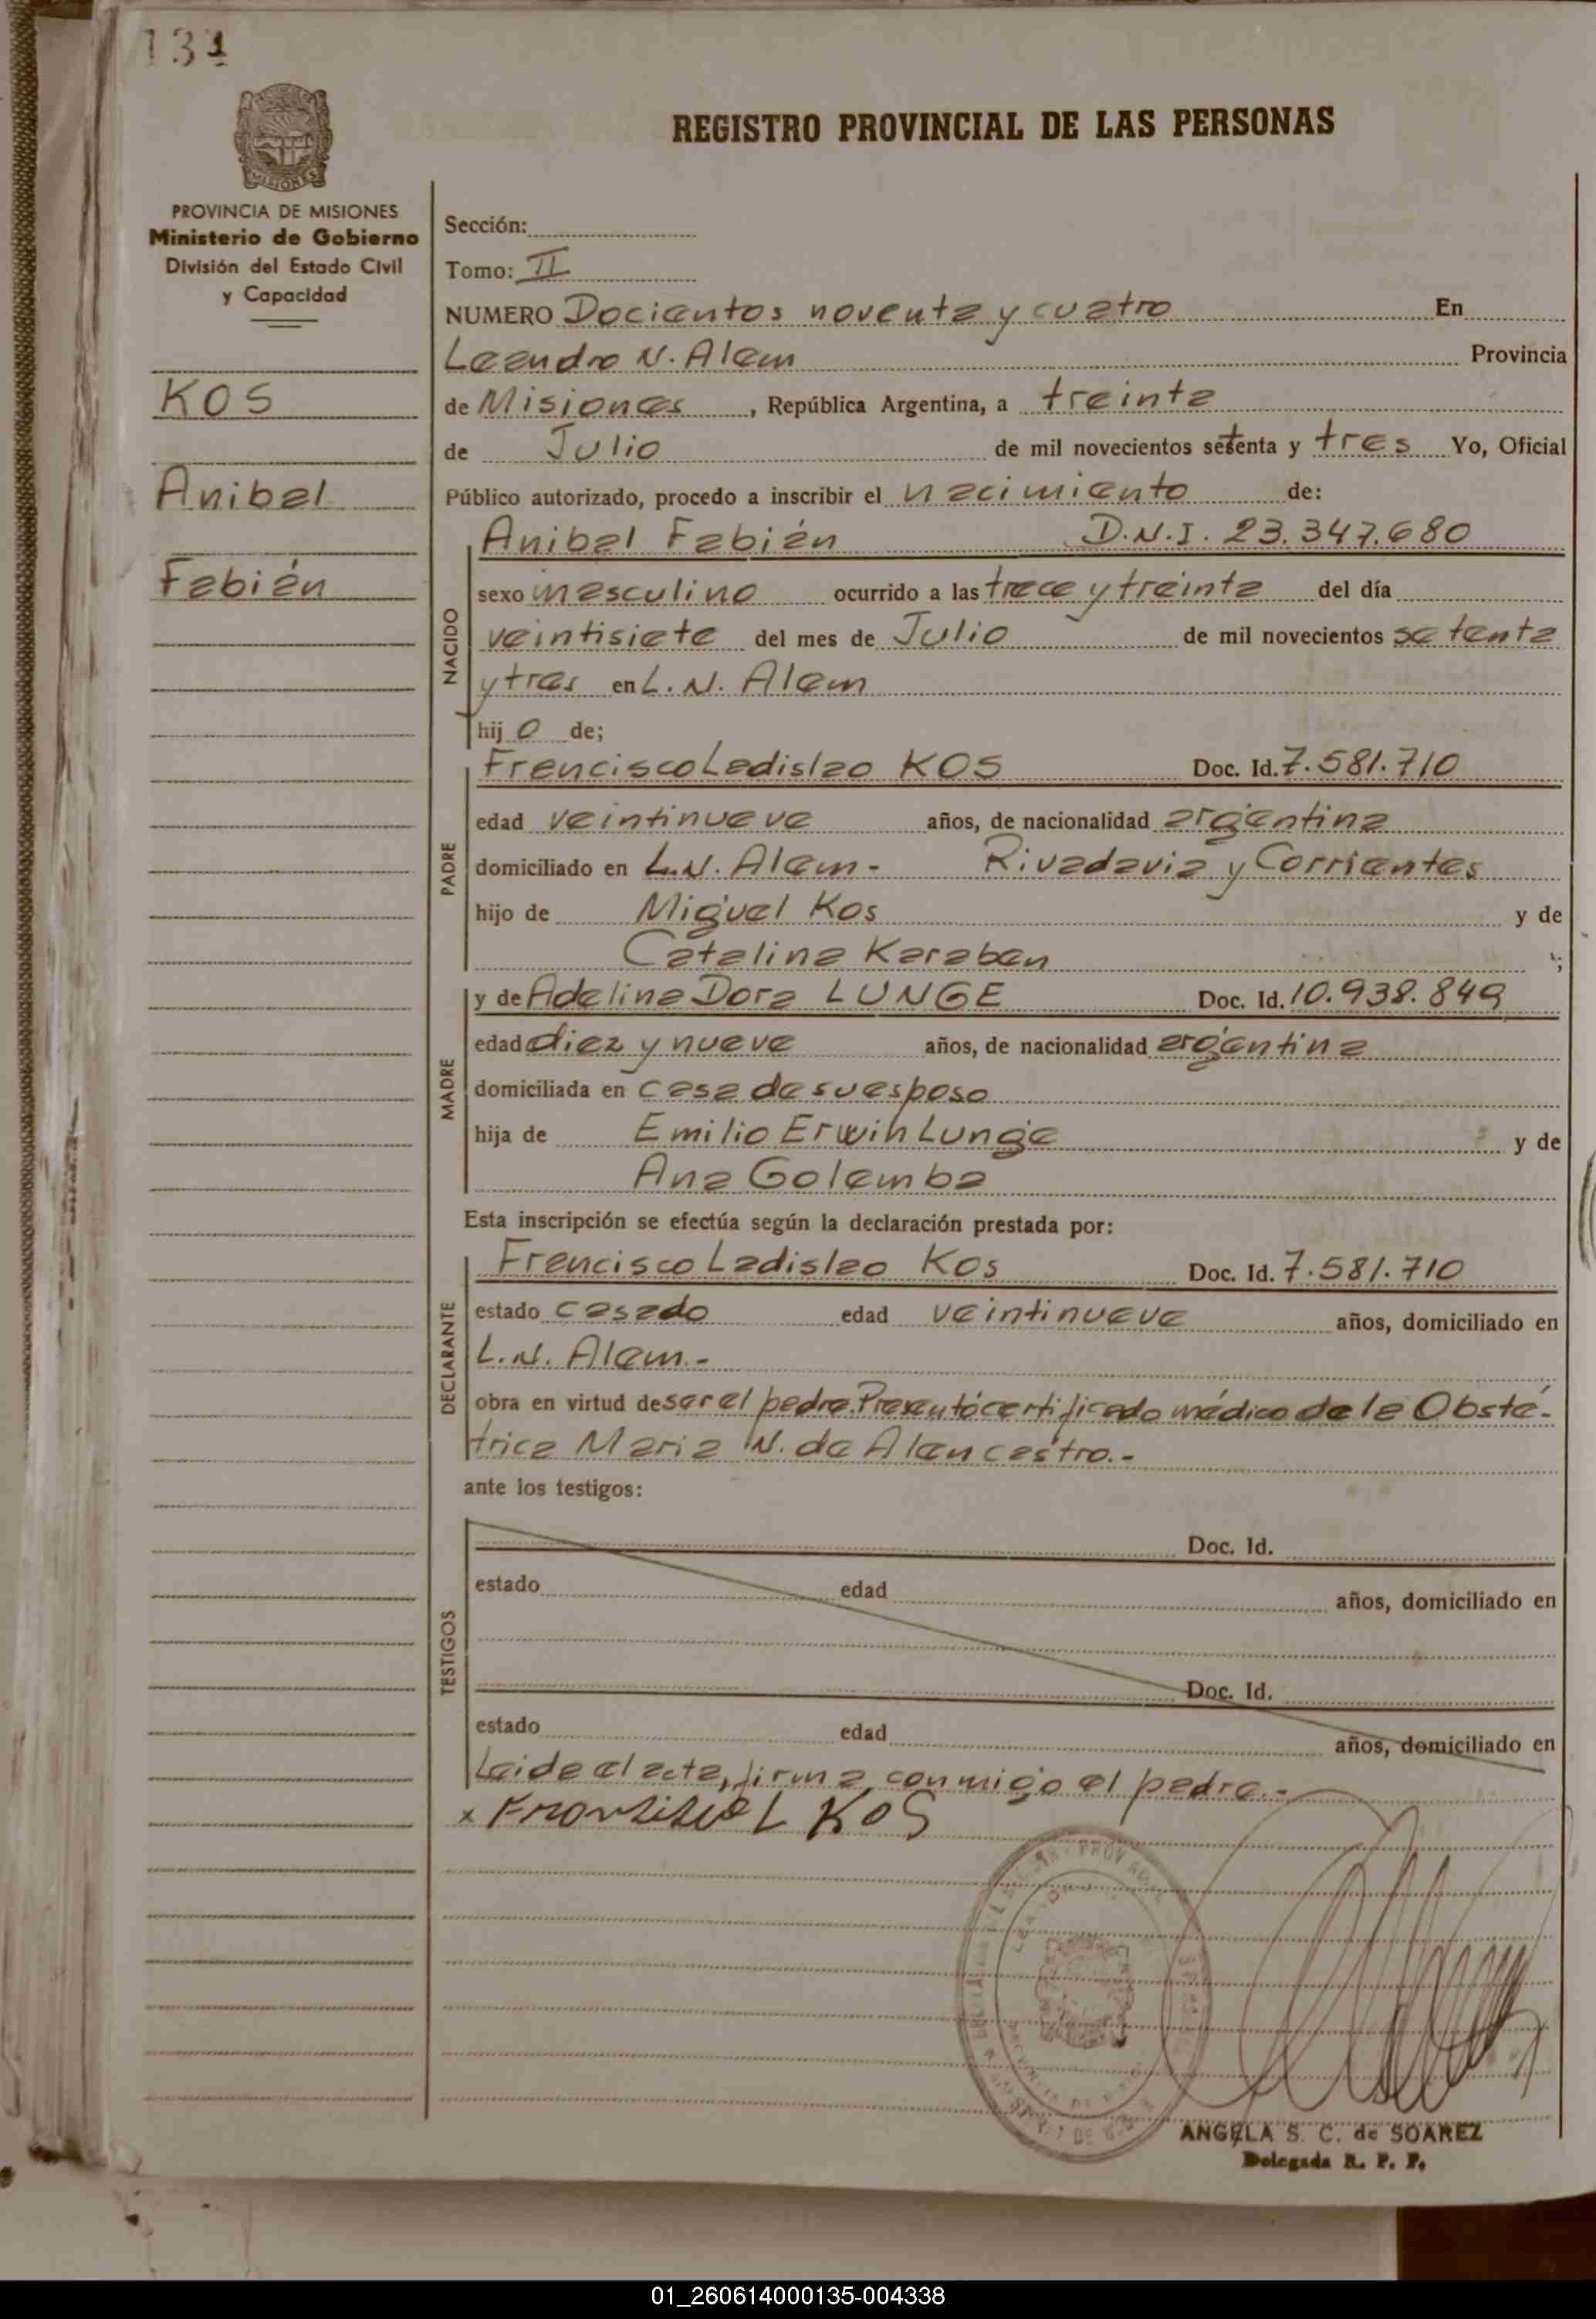 134
REGISTRO PROVINCIAL DE LAS PERSONAS
MISIONES
PROVINCIA DE MISIONES
Ministerio de Gobierno
División del Estado Civil
y Capacidad
KOS
Anibal
Fabián
Sección:
Tomo: II
NUMERO Docientos noventa y cuatro En
Leandro N. Alem Provincia
de Misiones, República Argentina, a treinta
de Julio de mil novecientos setenta y tres Yo, Oficial
Público autorizado, procedo a inscribir el nacimiento de:
Anibal Fabián D.N.I. 23.347.680
NACIDO
sexo masculino ocurrido a las trece y treinta del día
veintisiete del mes de Julio de mil novecientos setenta
y tres en L. N. Alem
hij o de;
PADRE
Francisco Ladislao KOS Doc. Id. 7.581.710
edad veintinueve años, de nacionalidad argentina
domiciliado en L.N. Alem.- Rivadavia y Corrientes
hijo de Miguel Kos y de
Catalina Karaban ;
MADRE
y de Adelina Dora LUNGE Doc. Id. 10.938.849
edad diez y nueve años, de nacionalidad argentina
domiciliada en casa de su esposo
hija de Emilio Erwin Lunge y de
Ana Golemba
Esta inscripción se efectúa según la declaración prestada por:
DECLARANTE
Francisco Ladislao Kos Doc. Id. 7.581.710
estado casado edad veintinueve años, domiciliado en
L.N. Alem.-
obra en virtud de ser el padre. Presentó certificado médico de la Obsté-
trica Maria N. de Alencastro.-
ante los testigos:
TESTIGOS
Doc. Id.
estado edad años, domiciliado en
Doc. Id.
estado edad años, domiciliado en
Leida el acta, firma conmigo el padre.-
x Francisco L KOS
ANGELA S. C. de SOAREZ
Delegada R. P. P.
01_260614000135-004338